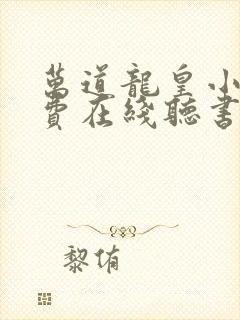 萬道龍皇小
費在綫聽書
黎侑